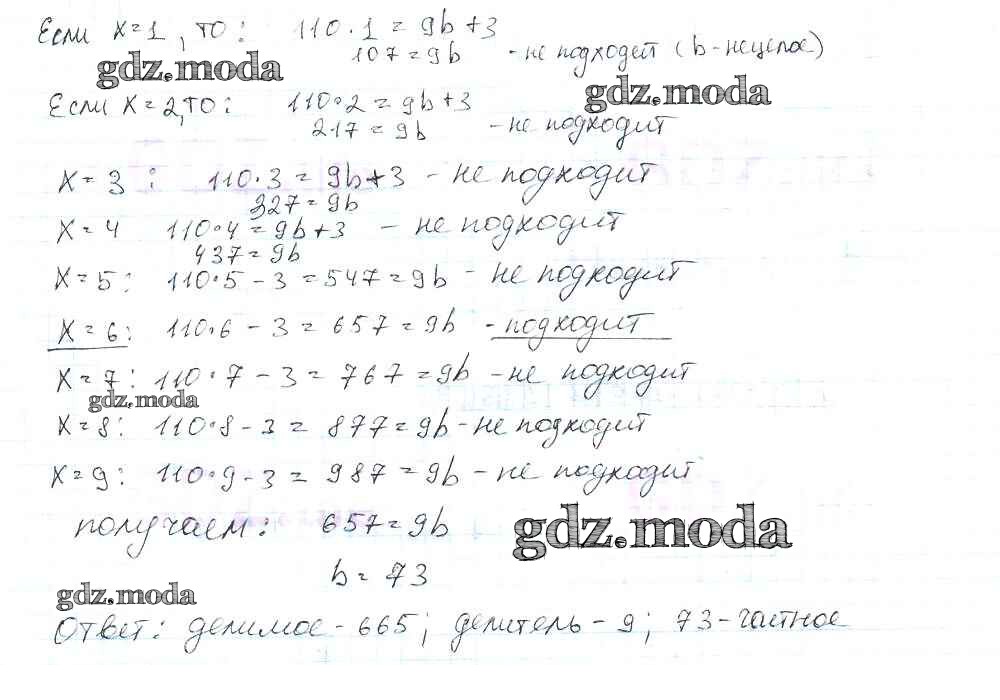 Если x=1, то: 110·1=9b+3
107=9b - не подходит (b-нецелое)
gdz.moda
gdz.moda
Если x=2, то: 110·2=9b+3
217=9b - не подходит
x=3: 110·3=9b+3 - не подходит
327=9b
x=4 110·4=9b+3 - не подходит
437=9b
x=5: 110·5-3=547=9b - не подходит
x=6: 110·6-3=657=9b - подходит
x=7: 110·7-3=767=9b - не подходит
gdz.moda
x=8: 110·8-3=877=9b - не подходит
x=9: 110·9-3=987=9b - не подходит
получаем: 657=9b
gdz.moda
b=73
gdz.moda
Ответ: делимое-665; делитель-9; 73-частное